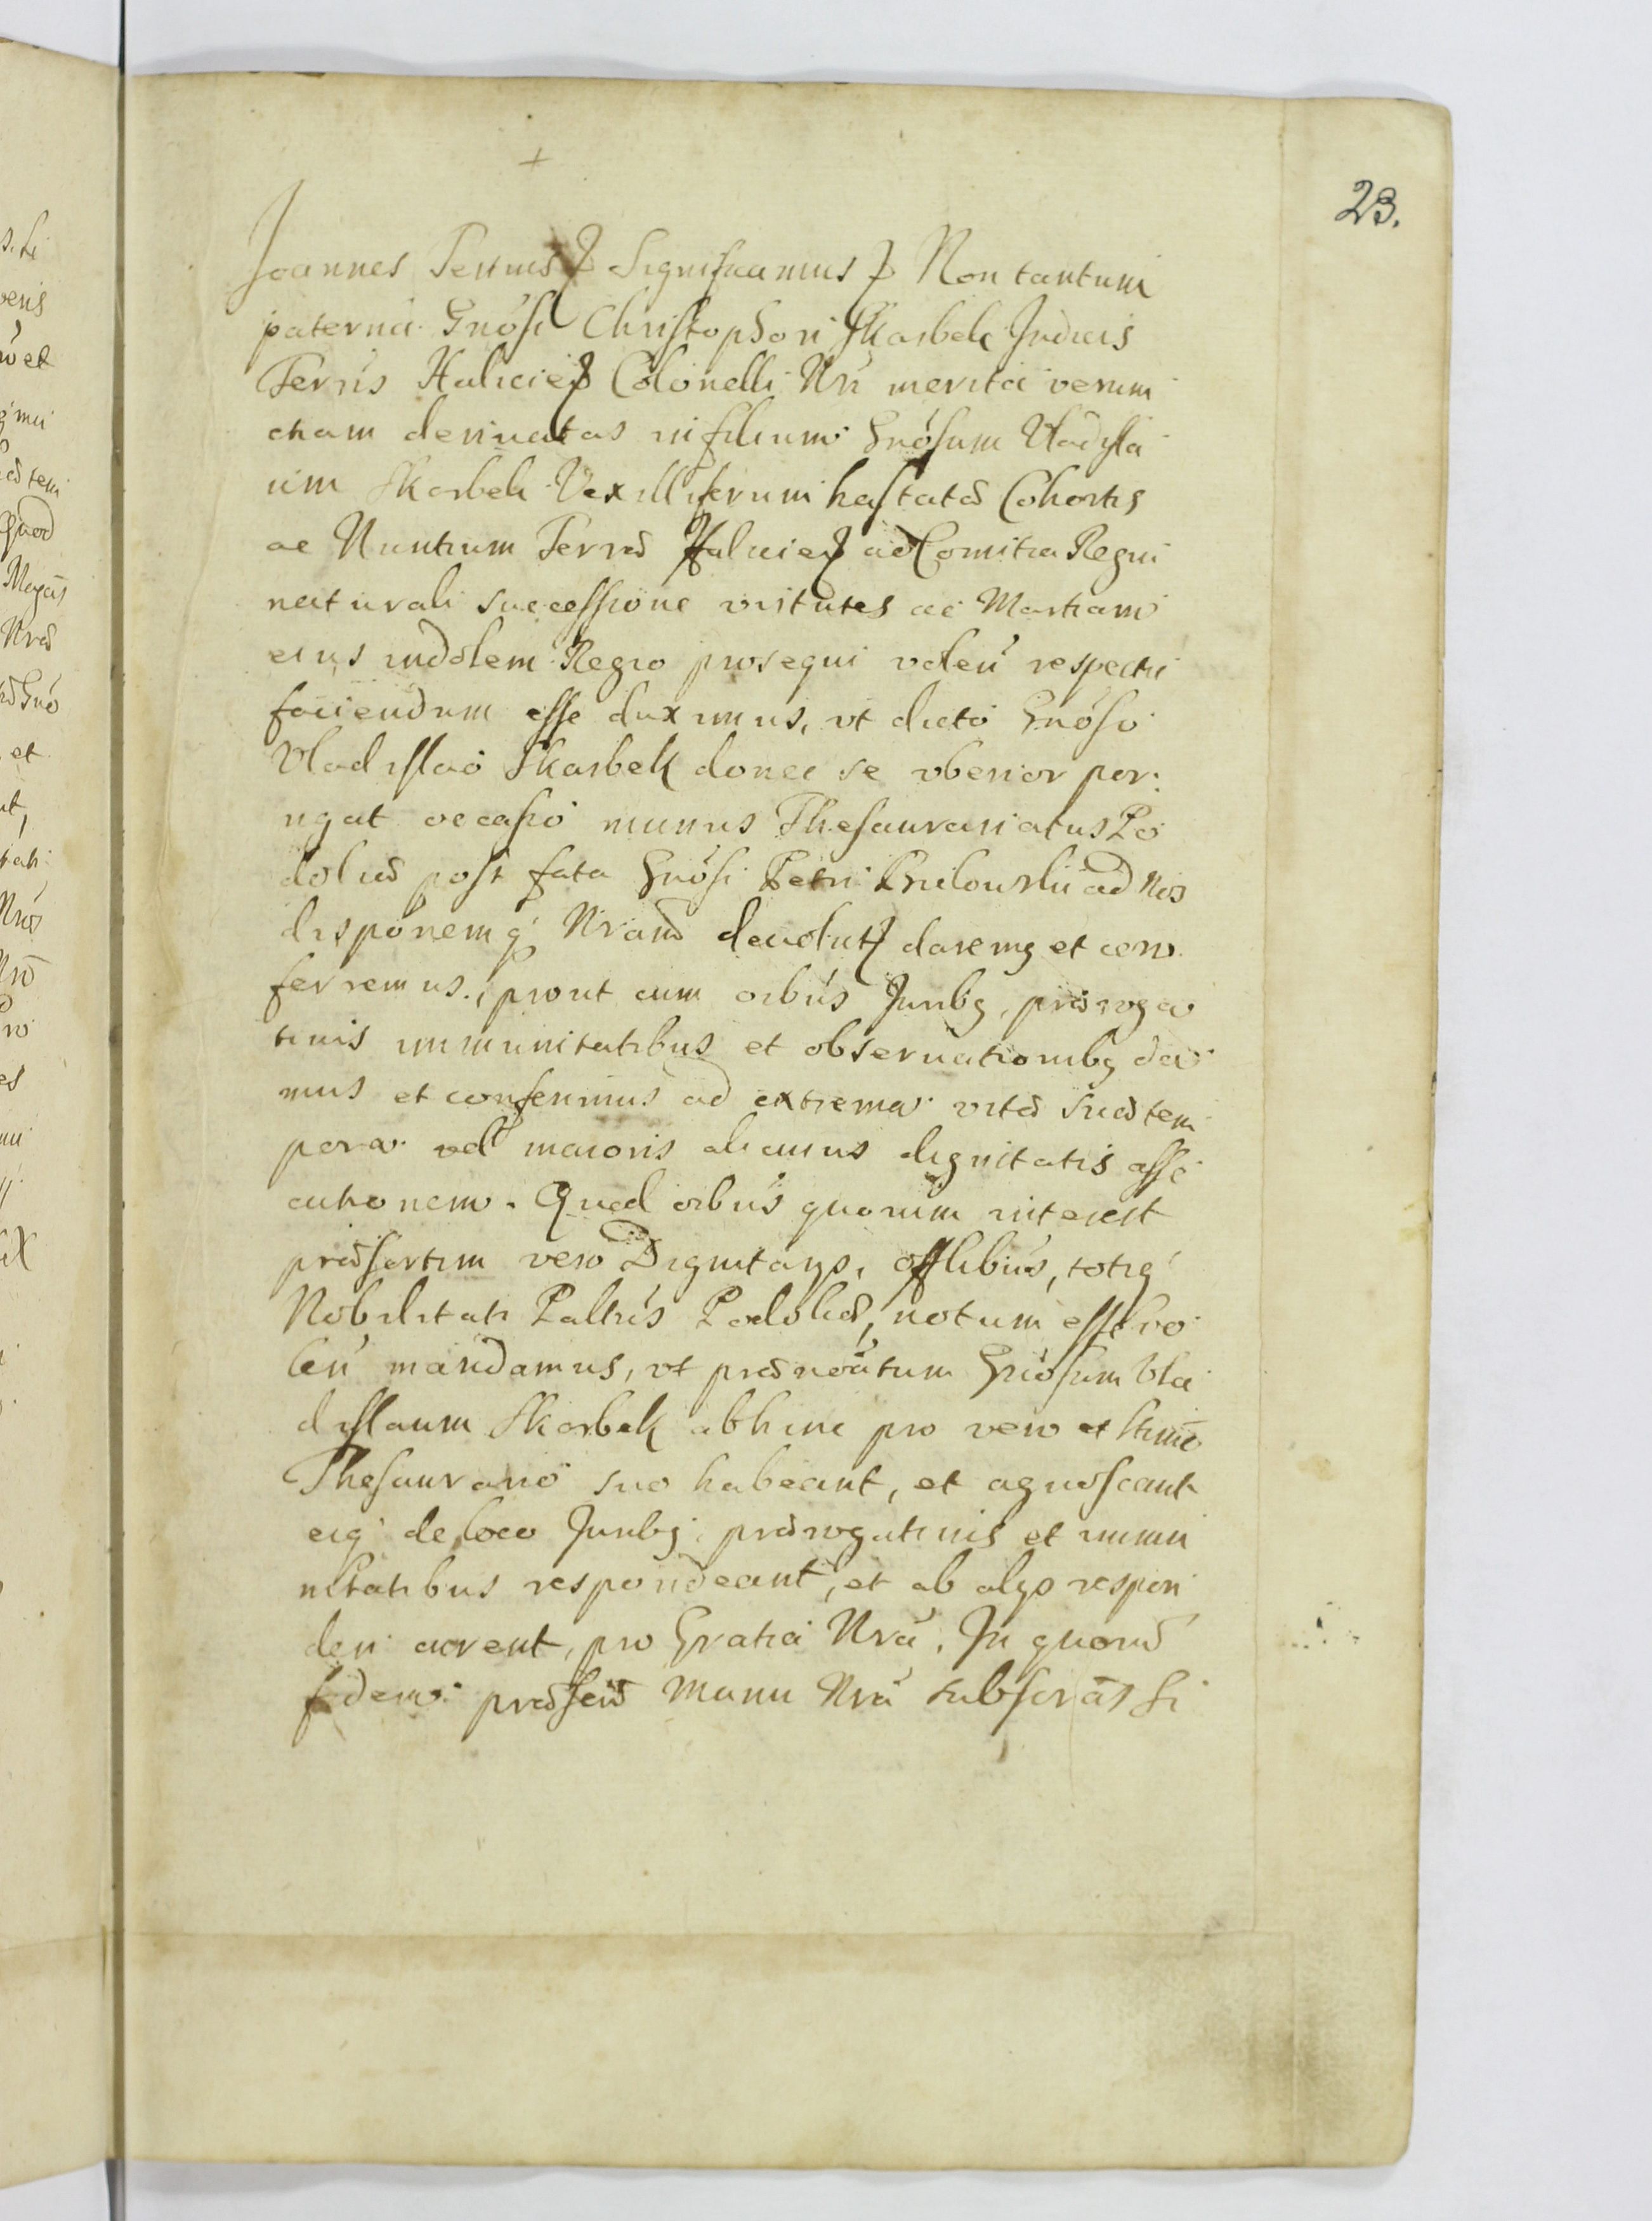 23.
Joannes Tertius Significamus Non tantum
paterna Gnosi Christophori Skarbek Judicis
Terrus Halicien Colonelli Nri merita verum
etiam deriuatas in filium Gnosum Vladisla
um Skarbek Vexilliferum hastatæ Cohortis
ac Nuntium Terræ Halicien ad Comitia Regni
naturali successione virtutes ac Martiam
eius indolem Regio prosequi volen respectu
faciendum esse duximus, vt dicto Gnoso
Vladislao Skarbek donec se vberior por:
rigat occasio munus Thesaurariatus Po
doliæ post fata Gnosi Petri ad Nos
disponemq Nram deuolut daremq et con
ferremus, prout cum oibus Juribq, præroga
tiuis immunitatibus et obseruationibq da
mus et conferimus ad extrema vitæ suæ tem
pora vel maioris alicuius dignitatis asse
cutionem. Quod oibus quorum interest
præsertim vero Dignitarys, offlibus, totiq
Nobilitati Paltus Podoliæ, notum esse vo
len mandamus, vt prænoatum Gnosum Vla
dislaum Skarbek abhinc pro vero et ltimo
Thesaurario suo habeant, et agnoscant
eiq de loco Juribq prærogatiuis et immu
nitatibus respondeant, et ab alys respon
deri curent, pro Gratia Nra. In quorum
fidem præsen Manu Nra subscras Si